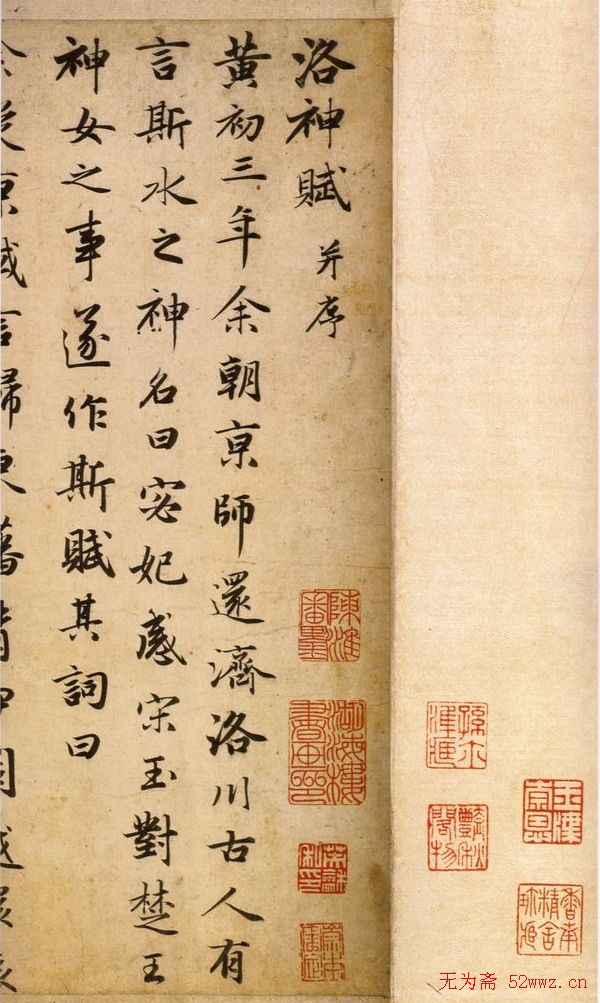 洛神賦 并序
黄初三年余朝京師還濟洛川古人有
言斯水之神名曰宓妃感宋玉對楚王
神女之事遂作斯賦其詞曰
京域言歸東藩
艷秋閣物
无为斋 52wwz.cn